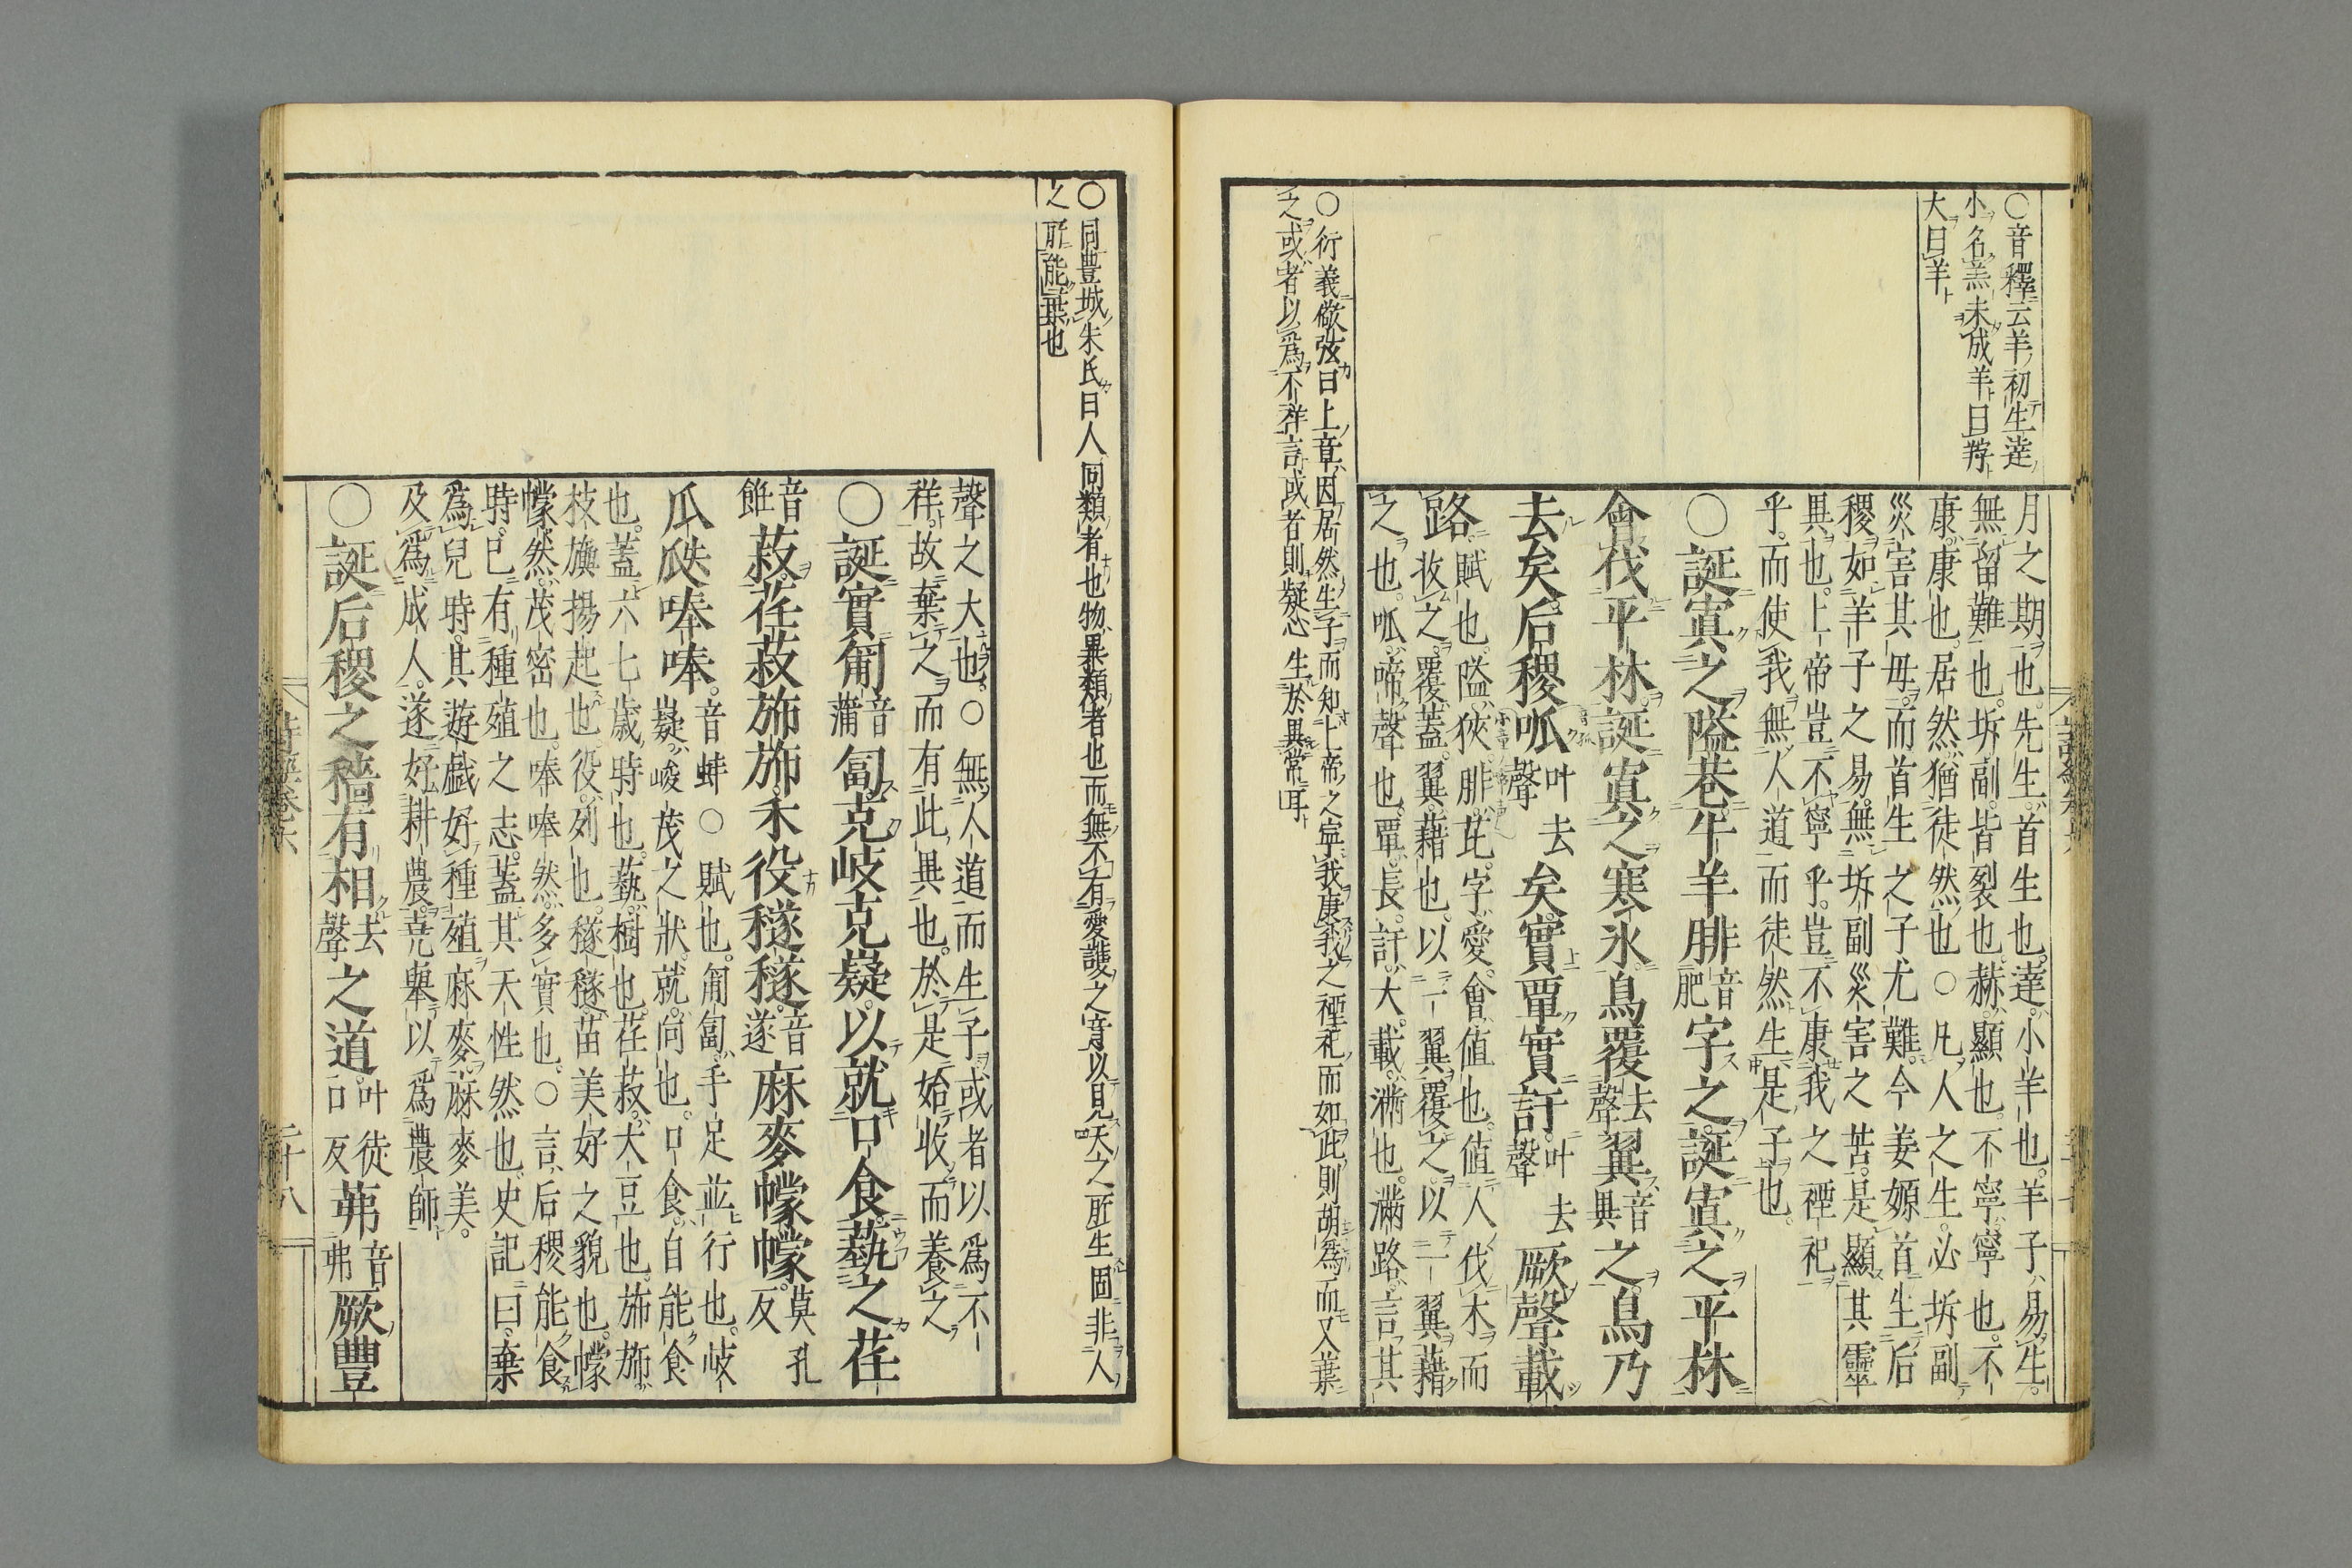 ○音釋云羊初生達
小名羔未成羊曰羜
大曰羊
月之期也。先生。首生也。達。小羊也。羊子。易生。
無留難也。坼副。皆裂也。赫。顯也。不寧。寧也。不
康。康也。居然。猶徒然也○凡人之生。必坼副
災害其母。而首生之子尤難。今姜嫄首生后
稷。如羊子之易。無坼副災害之苦。是顯其靈
異也。上帝豈不寧乎。豈不康我之禋祀
乎。而使我無人道而徒然生是子也。
○誕寘之隘巷牛羊腓音肥字之。誕寘之平林
會伐平林。誕寘之寒氷鳥覆去聲翼音異之。鳥乃
去矣后稷呱叶去聲矣。實覃實訏叶去聲。厥聲載
路。賦也。隘。狹。腓。芘。字。愛。會。値也。値人伐木而
收之。覆。蓋。翼。藉也。以一翼覆之。以一翼藉
之也。呱。啼聲也。覃。長。訏。大。載。滿也。滿路。言其
○衍義儆弦曰上章因居然生子而知上帝之寧我康我之禋祀而如此則胡爲而又棄
之或者以爲不祥言或者則疑心生於異常耳
○同豊城朱氏曰人同類者也物異類者也而無不有愛護之意以見天之所生固非人
之所能棄也
聲之大也。○無人道而生子。或者以爲不
祥。故棄之。而有此異也。於是始收而養之
○誕實匍音蒲匐克岐克嶷。以就口食。蓺之荏
菽。荏菽旆旆禾役穟穟音遂。麻麥幪幪莫孔反。
瓜瓞唪唪音蚌。○賦也。匍匐。手足並行也。岐
嶷。峻茂之狀。就。向也。口食。自能食
也。蓋六七歲時也。蓺。樹也。荏菽。大豆也。旆旆。
枝旟揚起也。役。列也。穟穟。苗美好之貌也。幪
幪然。茂密也。唪唪然。多實也。○言。后稷能食
時。已有種殖之志。蓋其天性然也。史記曰。棄
爲兒時。其遊戲好種殖麻麥。麻麥美。
及爲成人。遂好耕農。堯擧以爲農師
○誕后稷之穡有相去聲之道叶徒口反。茀音弗厥豐
二十八